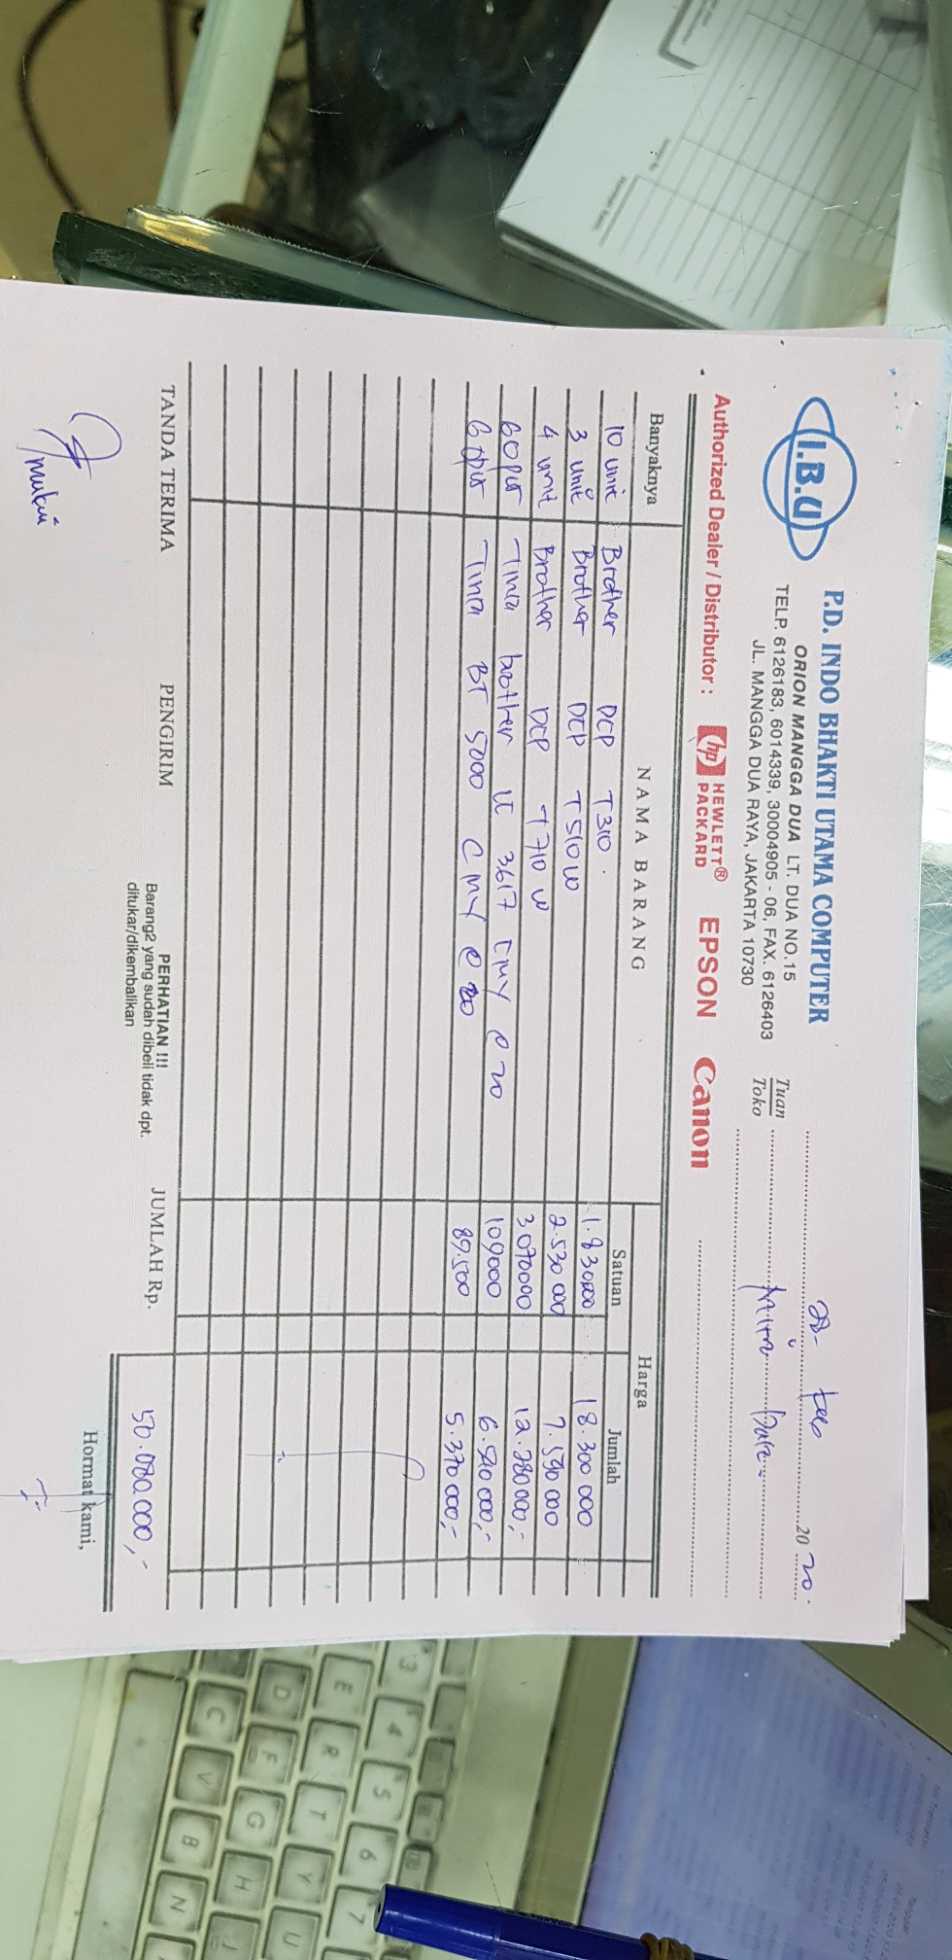 I.B.U
P.D. INDO BHAKTI UTAMA COMPUTER
ORION MANGGA DUA LT. DUA NO.15
TELP. 6126183, 6014339, 30004905 - 06, FAX. 6126403
JL. MANGGA DUA RAYA, JAKARTA 10730
Authorized Dealer / Distributor : hp HEWLETT® PACKARD EPSON Canon
20 20
Tuan
Toko
Banyaknya NAMA BARANG Harga
Satuan Jumlah
10 unit Brother DCP T310 1.830.000 18.300 000
3 unit Brother DCP T510 W 2.530 000 7.590 000
4 unit Brother DCP T710 W 3070000 12.280 000,-
60 pcs Tinta brother LC 3617 CMY @ 20 109000 6.540 000,-
60 pcs Tinta BT 5000 CMY @ 20 89.500 5.370 000,-
TANDA TERIMA PENGIRIM
PERHATIAN !!!
Barang2 yang sudah dibeli tidak dpt.
ditukar/dikembalikan
JUMLAH Rp. 50.080.000,-
Hormat kami,
3 4 5 6 7
E R T Y U
D F G H J
C V B N